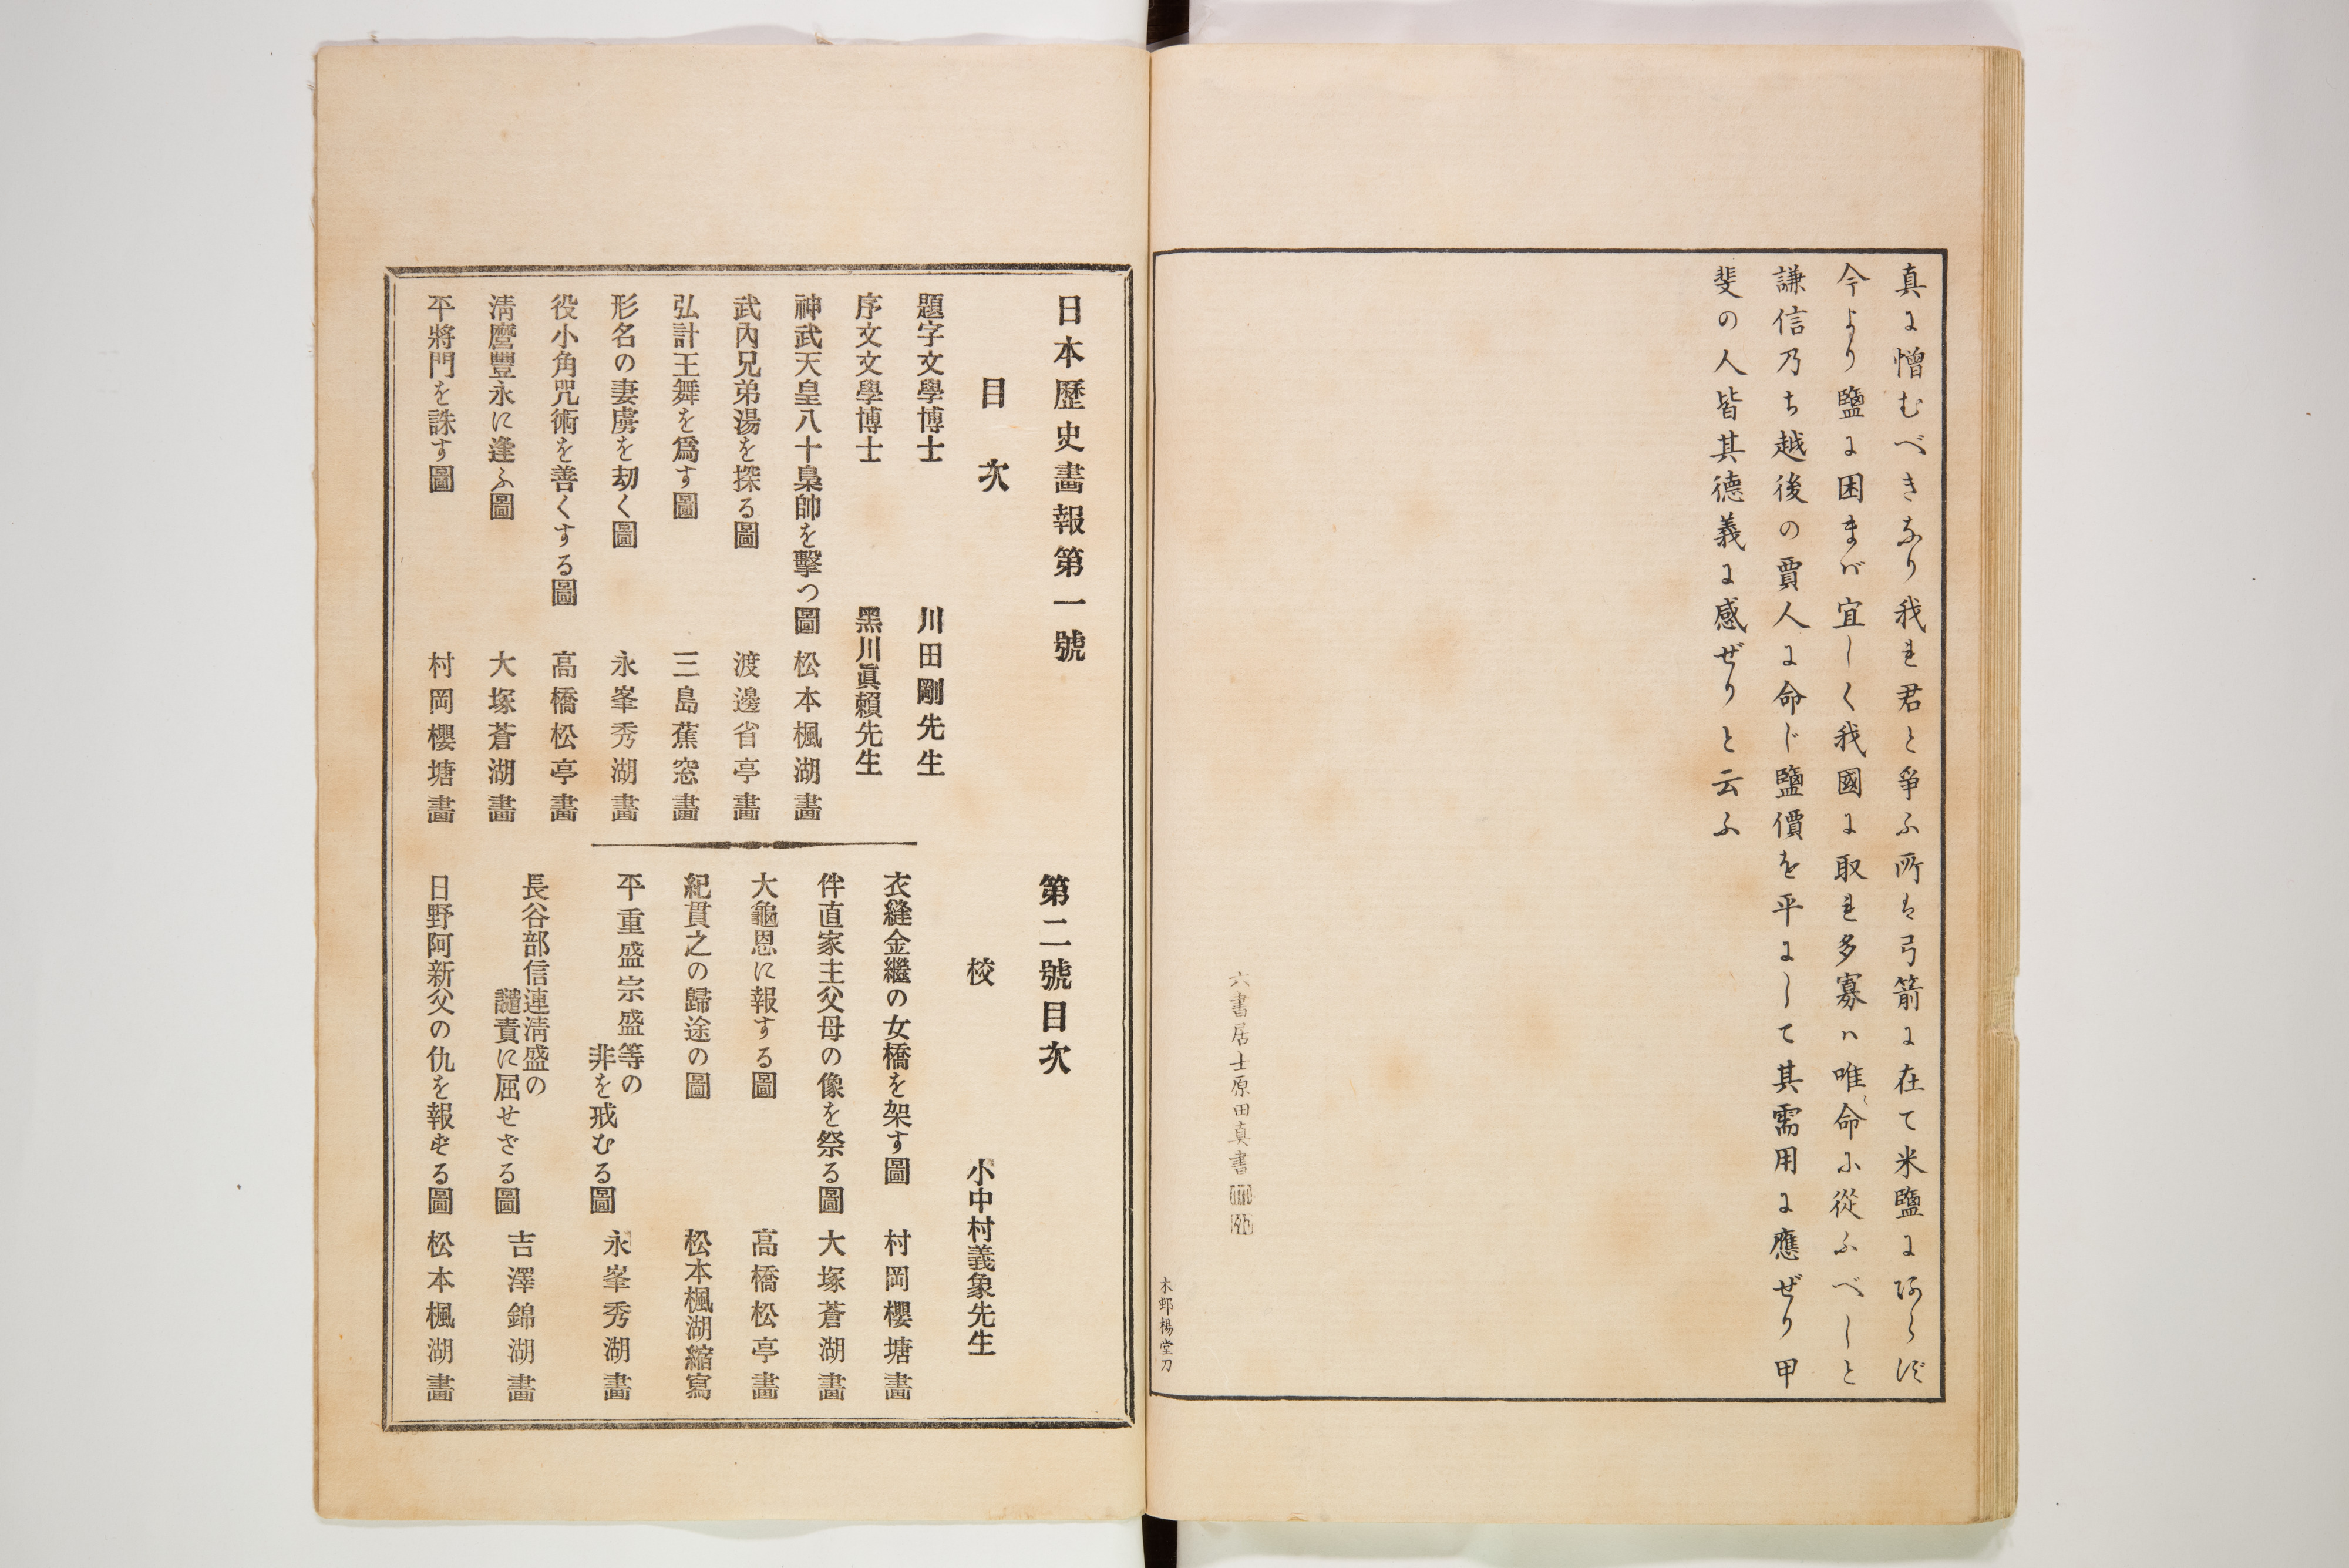 真に憎むべきなり我れ君と爭ふ所は弓箭に在て米鹽にあらず
今より鹽に困まば宜しく我國に取れ多寡ハ唯命に從ふべしと
謙信乃ち越後の賈人に命じ鹽價を平にして其需用に應ぜり甲
斐の人皆其德義に感ぜりと云ふ
六書居士原田真書
木邨楊堂刀
日本歷史畫報第一號
目次
題字文學博士 川田剛先生
序文文學博士 黑川眞賴先生
神武天皇八十梟帥を擊つ圖 松本楓湖畫
武內兄弟湯を探る圖 渡邊省亭畫
弘計王舞を爲す圖 三島蕉窓畫
形名の妻虜を劫く圖 永峯秀湖畫
役小角咒術を善くする圖 高橋松亭畫
淸麿豐永に逢ふ圖 大塚蒼湖畫
平將門を誅す圖 村岡櫻塘畫
第二號目次
校 小中村義象先生
衣縫金繼の女橋を架す圖 村岡櫻塘畫
伴直家主父母の像を祭る圖 大塚蒼湖畫
大龜恩に報する圖 高橋松亭畫
紀貫之の歸途の圖 松本楓湖縮寫
平重盛宗盛等の
非を戒むる圖 永峯秀湖畫
長谷部信連淸盛の
譴責に屈せさる圖 吉澤錦湖畫
日野阿新父の仇を報ずる圖 松本楓湖畫